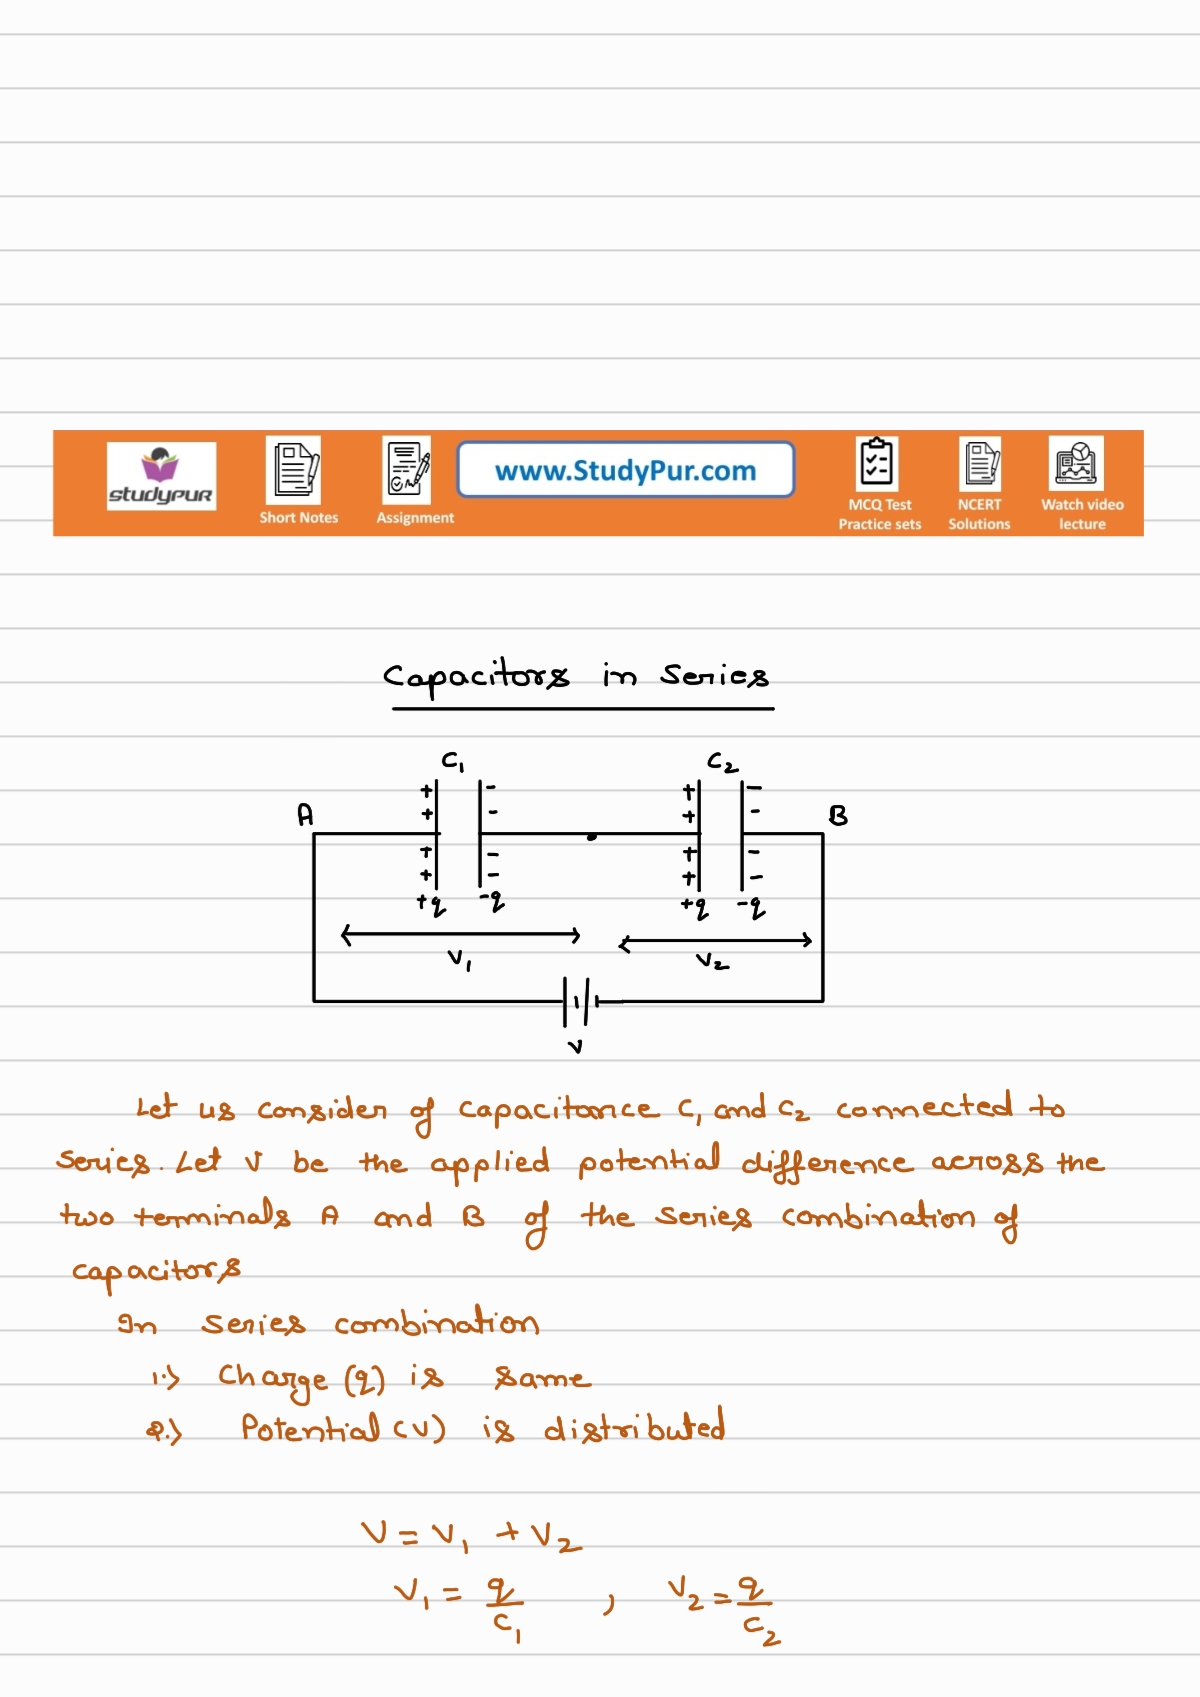 studypur
Short Notes
Assignment
www.StudyPur.com
MCQ Test
Practice sets
NCERT
Solutions
Watch video
lecture
Capacitors in Series
C₁ C₂
A B
+ - + -
+ - + -
+ - + -
+ - + -
+q -q +q -q
V₁ V₂
V
Let us consider of capacitance C₁ and C₂ connected to
series. Let V be the applied potential difference across the
two terminals A and B of the series combination of
capacitors
In series combination
1.) Charge (q) is same
2.) Potential (V) is distributed
V = V₁ + V₂
V₁ = q/C₁ , V₂ = q/C₂